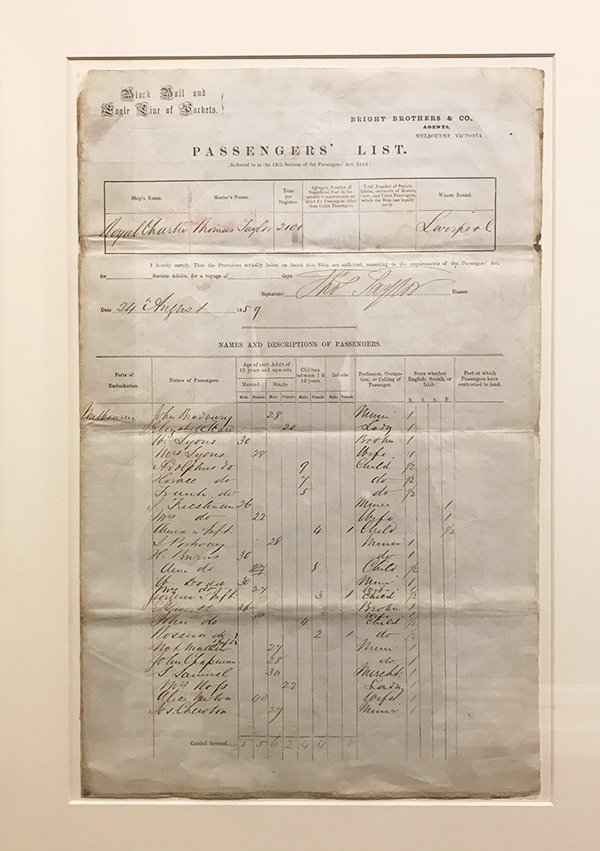 Black Ball and
Eagle Line of Packets.
BRIGHT BROTHERS & CO.,
AGENTS,
MELBOURNE, VICTORIA.
PASSENGERS' LIST.
(Referred to in the 12th Section of the Passengers' Act, 1855)
Ship's Name. Master's Name. Tons per Register. Aggregate Number of Superficial Feet in the several Compartments set apart for Passengers other than Cabin Passengers. Total Number of Statute Adults, exclusive of Master, crew, and Cabin Passengers, which the Ship can legally carry. Where Bound.
Royal Charter Thomas Taylor Liverpool
I hereby certify, That the Provisions actually laden on board this Ship are sufficient, according to the requirements of the Passengers' Act,
for Statute Adults, for a voyage of days.
Signature Thos Taylor Master.
Date 24th August 1859
NAMES AND DESCRIPTIONS OF PASSENGERS.
Ports of Embarkation. Names of Passengers. Age of each Adult of 12 years and upwards. Children between 1 & 12 years. Infants. Profession, Occupation, or Calling of Passenger. State whether English, Scotch, or Irish. Port at which Passengers have contracted to land.
Married. Single.
Male. Female. Male. Female. Male. Female. Male. Female. E. I. S. F.
Melbourne John Bradbury 28 Miner 1
Elizabeth 20 Lady 1
W. Lyons 30 Broker 1
Mrs Lyons Wife 1
Adolphus do 9 Child
Horace do 7 do
Frank do 5 do
26 Miner 1
Mrs do 22 Wife 1
Anna & Inft. 4 1 Child
28 Miner 1
H. 30 do 1
do 8 Child
W. 30 Miner 1
Mrs do 27 Wife 1
& Inft 3 1 Child
36 Broker 1
30 Wife 1
John do 4 Child
do 2 1 do
27 Miner 1
John Chapman 28 do 1
S Samuel 30 Mercht 1
Mrs 22 Lady 1
Alice 40 Wife 1
Jos. 27 Miner 1
Carried forward... 5 5 6 2 4 4